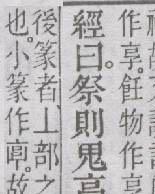 作享。飪物作亨
經曰。祭則鬼亯
後篆者、上部之
也。小篆作 故